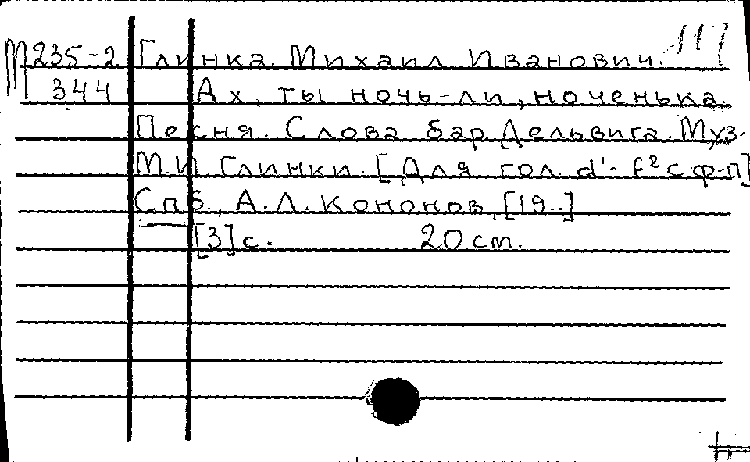 М235-2 Глинка Михаил Иванович. 117
344 Ах, ты ночь-ли, ноченька.
Песня. Слова бар. Дельвига. Муз.
М.И. Глинки. [Для гол. d'- f² с ф-п]
Спб, А.Л. Кононов, [19..]
[3] с. 20 ст.